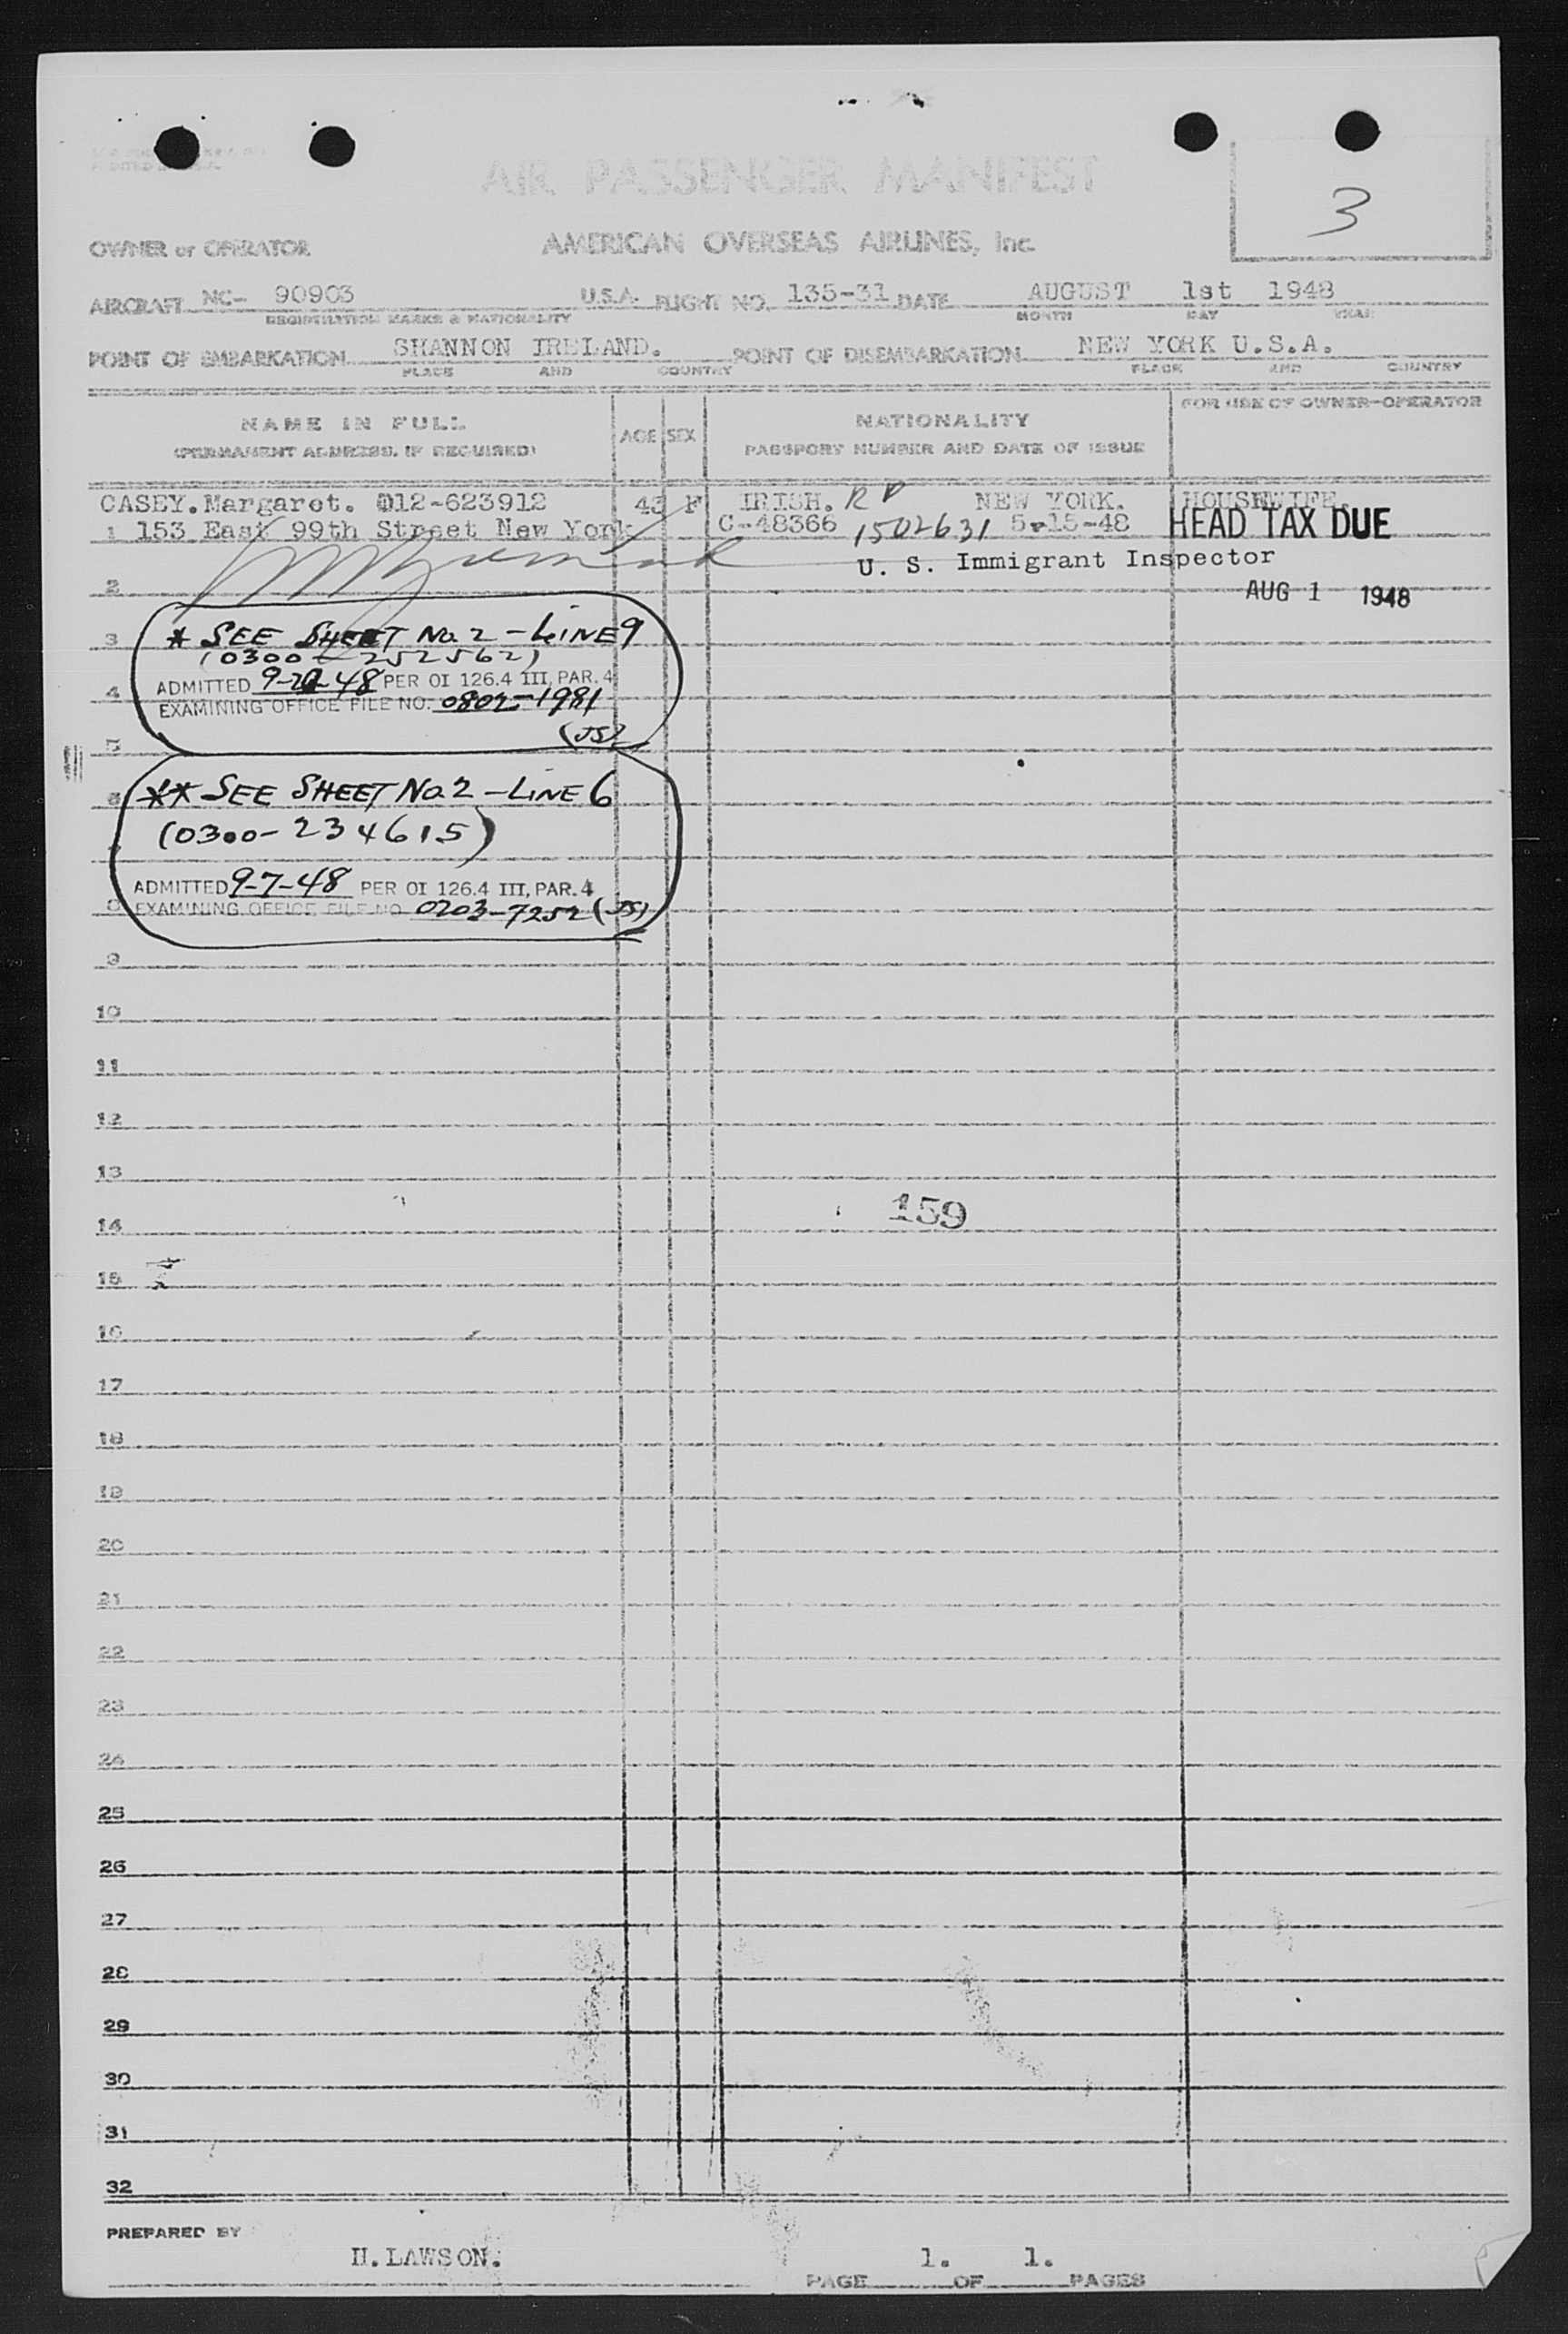 PRINTED
AIR PASSENGER MANIFEST
3
OWNER or OPERATOR AMERICAN OVERSEAS AIRLINES, Inc.
AIRCRAFT NC- 90903 U.S.A. FLIGHT NO. 135-31 DATE AUGUST 1st 1948
REGISTRATION MARKS & NATIONALITY MONTH DAY YEAR
POINT OF EMBARKATION SHANNON IRELAND. POINT OF DISEMBARKATION NEW YORK U.S.A.
PLACE AND COUNTRY PLACE AND COUNTRY
NAME IN FULL AGE SEX NATIONALITY FOR USE OF OWNER-OPERATOR
(PERMANENT ADDRESS, IF REQUIRED) PASSPORT NUMBER AND DATE OF ISSUE
CASEY. Margaret. 012-623912 43 F IRISH. RP NEW YORK. HOUSEWIFE.
1 153 East 99th Street New York C-48366 1502631 5-15-48 HEAD TAX DUE
U. S. Immigrant Inspector
2 AUG 1 1948
3 * SEE SHEET No. 2 - LINE 9
(0300 - 252562)
4 ADMITTED 9-22-48 PER OI 126.4 III, PAR. 4
EXAMINING OFFICE FILE NO. 0802-1981
5 (JS)
6 ** SEE SHEET No. 2 - LINE 6
(0300-234615)
ADMITTED 9-7-48 PER OI 126.4 III, PAR. 4
8 EXAMINING OFFICE FILE NO. 0203-7252 (JS)
9
10
11
12
13
14 159
15
16
17
18
19
20
21
22
23
24
25
26
27
28
29
30
31
32
PREPARED BY
H. LAWSON. 1. 1.
PAGE OF PAGES